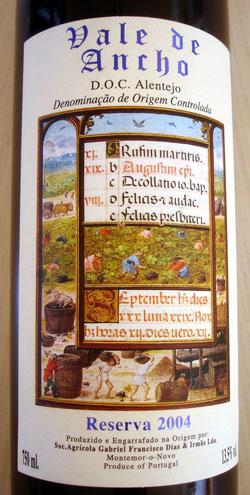 Vale de
Ancho
D.O.C. Alentejo
Denominação de Origem Controlada
xi. A Rufini martiris.
xix. b Augustini epi.
c Decollatio io. bap.
viii. d Felicis z audac.
e Felicis presbiteri.
September hz dies
xxx luna xxix. Nox
hz horas xij. dies vero. xij.
Reserva 2004
Produzido e Engarrafado na Origem por:
Soc. Agrícola Gabriel Francisco Dias & Irmãs Lda.
Montemor-o-Novo
Produce of Portugal
750 ml.
13,5%